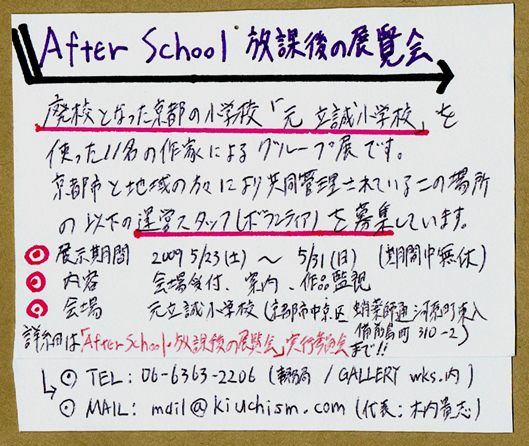 After School 放課後の展覧会
廃校となった京都の小学校「元 立誠小学校」を
使った11名の作家によるグループ展です。
京都市と地域の方々により共同管理されているこの場所
の以下の運営スタッフ(ボランティア)を募集しています。
◎ 展示期間 2009 5/23(土) 〜 5/31(日) (期間中無休)
◎ 内容 会場受付、案内、作品監視
◎ 会場 元立誠小学校(京都市中京区 蛸薬師通河原町東入
備前島町 310-2)
詳細は「After School・放課後の展覧会」実行委員会まで!!
◎ TEL: 06-6363-2206 (事務局 / GALLERY wks.内)
◎ MAIL: mail@kiuchism.com (代表:木内貴志)